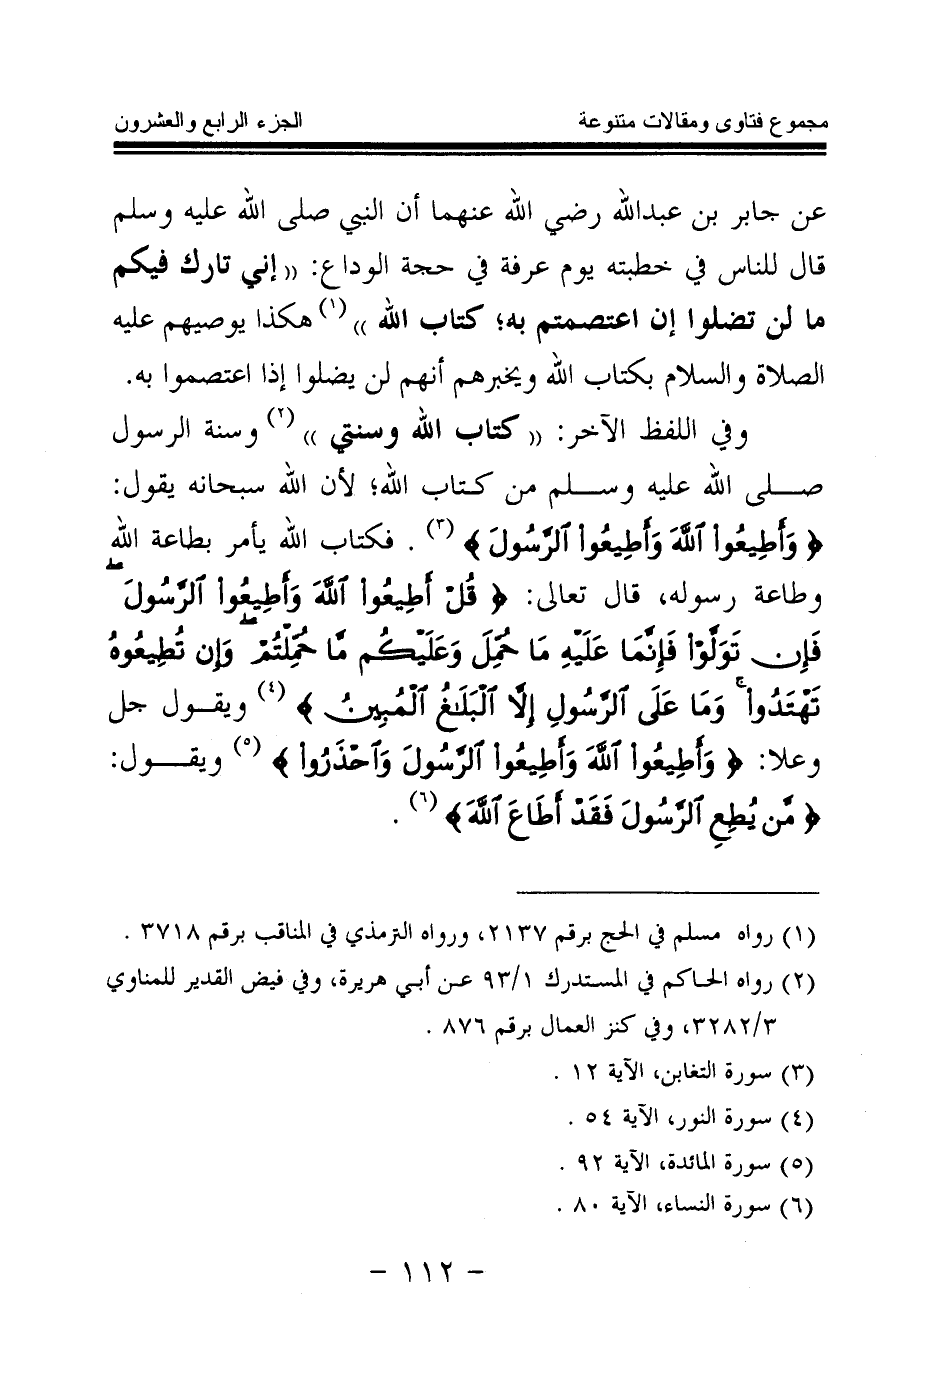 مجموع فتاوى ومقالات متنوعة الجزء الرابع والعشرون
عن جابر بن عبدالله رضي الله عنهما أن النبي صلى الله عليه وسلم
قال للناس في خطبته يوم عرفة في حجة الوداع: (( إني تارك فيكم
ما لن تضلوا إن اعتصمتم به؛ كتاب الله ))(١) هكذا يوصيهم عليه
الصلاة والسلام بكتاب الله ويخبرهم أنهم لن يضلوا إذا اعتصموا به.
وفي اللفظ الآخر: (( كتاب الله وسنتي ))(٢) وسنة الرسول
صلى الله عليه وسلم من كتاب الله؛ لأن الله سبحانه يقول:
﴿ وَأَطِيعُوا۟ ٱللَّهَ وَأَطِيعُوا۟ ٱلرَّسُولَ ﴾(٣) . فكتاب الله يأمر بطاعة الله
وطاعة رسوله، قال تعالى: ﴿ قُلْ أَطِيعُوا۟ ٱللَّهَ وَأَطِيعُوا۟ ٱلرَّسُولَ ۖ
فَإِن تَوَلَّوْا۟ فَإِنَّمَا عَلَيْهِ مَا حُمِّلَ وَعَلَيْكُم مَّا حُمِّلْتُمْ ۖ وَإِن تُطِيعُوهُ
تَهْتَدُوا۟ ۚ وَمَا عَلَى ٱلرَّسُولِ إِلَّا ٱلْبَلَٰغُ ٱلْمُبِينُ ﴾(٤) ويقول جل
وعلا: ﴿ وَأَطِيعُوا۟ ٱللَّهَ وَأَطِيعُوا۟ ٱلرَّسُولَ وَٱحْذَرُوا۟ ﴾(٥) ويقول:
﴿ مَّن يُطِعِ ٱلرَّسُولَ فَقَدْ أَطَاعَ ٱللَّهَ ﴾(٦) .
(١) رواه مسلم في الحج برقم ٢١٣٧، ورواه الترمذي في المناقب برقم ٣٧١٨ .
(٢) رواه الحاكم في المستدرك ٩٣/١ عن أبي هريرة، وفي فيض القدير للمناوي
٣٢٨٢/٣، وفي كنز العمال برقم ٨٧٦ .
(٣) سورة التغابن، الآية ١٢ .
(٤) سورة النور، الآية ٥٤ .
(٥) سورة المائدة، الآية ٩٢ .
(٦) سورة النساء، الآية ٨٠ .
- ١١٢ -